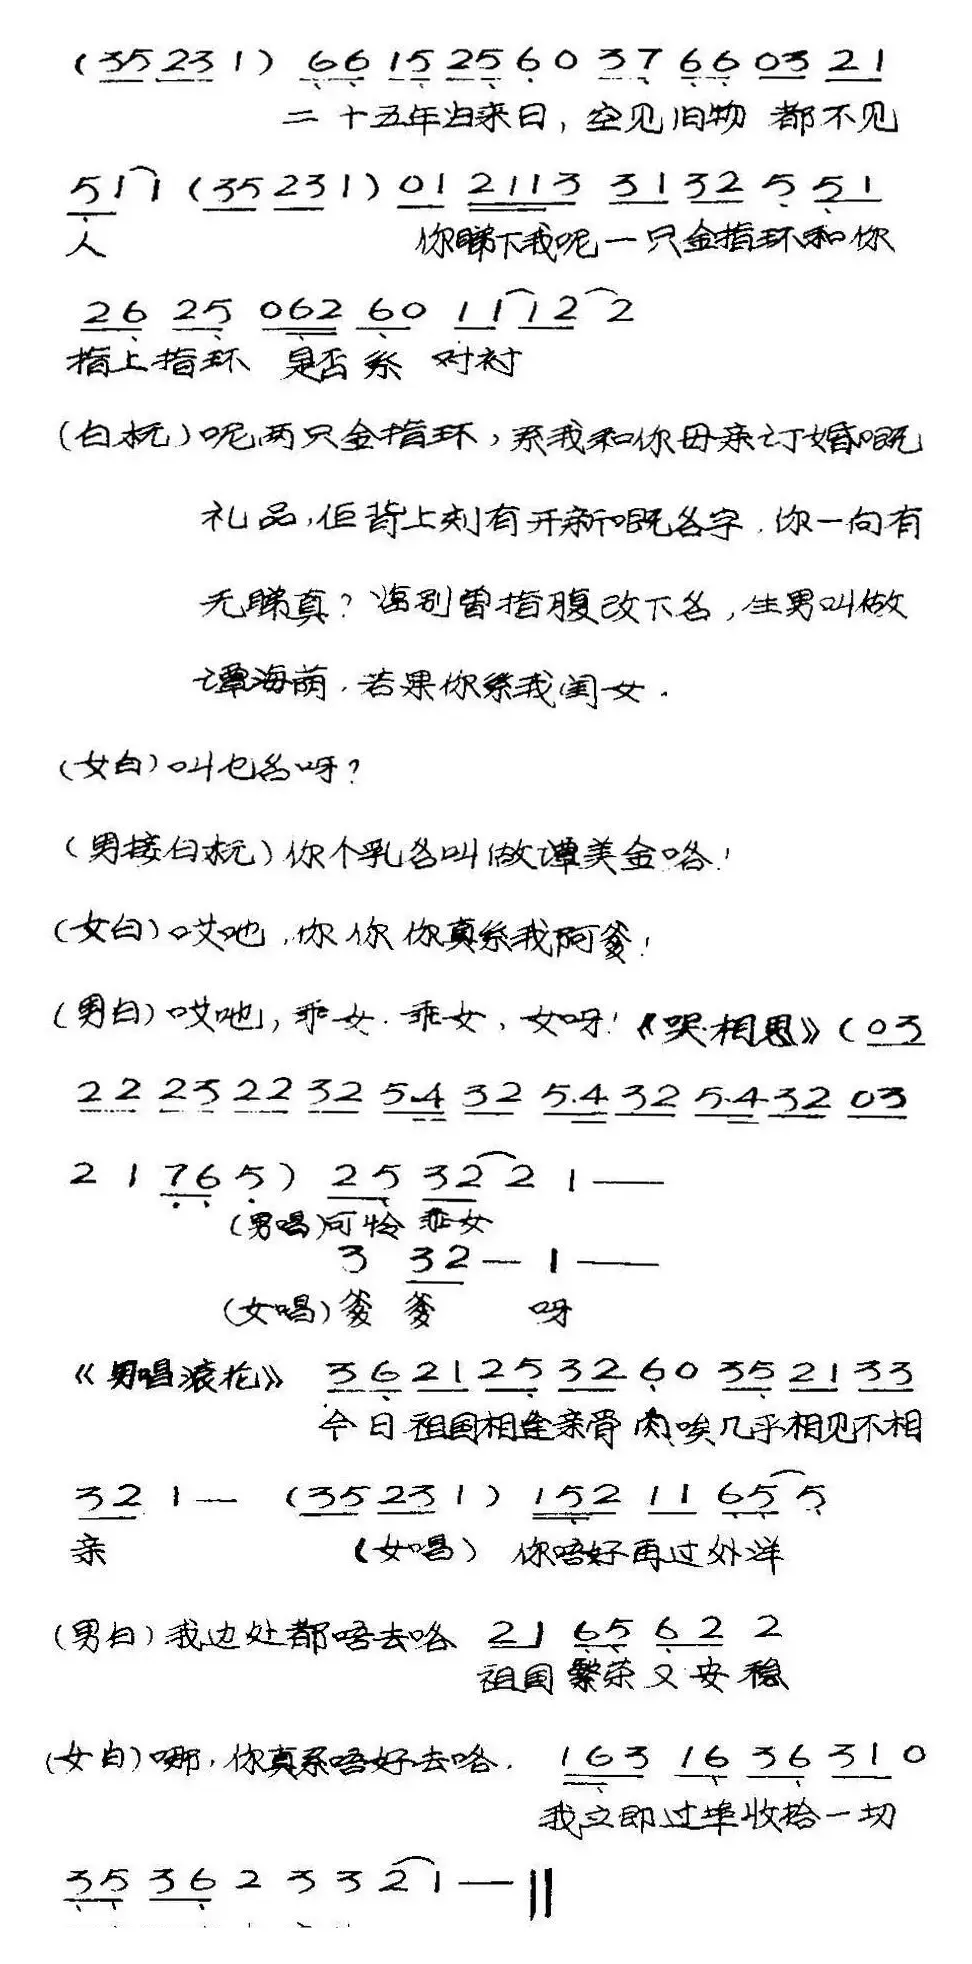 (35 23 1) 66 15 25 6 0 37 66 03 21
二十五年归来日，空见旧物 都不见
51 1 (35 23 1) 01 2113 31 32 5 51
人 你睇下我呢一只金指环和你
26 25 062 60 11 12 2
指上指环 是否系 对衬
(白杬)呢两只金指环，系我和你母亲订婚嘅
礼品，佢背上刻有开新嘅名字．你一向有
无睇真？临别曾指腹改下名，生男叫做
谭海萌．若果你系我闺女．
(女白)叫乜名呀？
(男接白杬)你个乳名叫做谭美金咯！
(女白)哎吔，你你你真系我阿爹！
(男白)哎吔，乖女．乖女，女呀！《哭相思》(03
22 23 22 32 5.4 32 5.4 32 5.4 32 03
2 1 76 5) 25 32 2 1 —
(男唱)可怜 乖女
3 32 — 1 —
(女唱)爹 爹 呀
《男唱滚花》 36 21 25 32 6 0 35 21 33
今日祖国相逢亲骨肉唉几乎相见不相
32 1 — (35 23 1) 152 11 65 5
亲 (女唱) 你唔好再过外洋
(男白)我边处都唔去咯 21 65 62 2
祖国繁荣又安稳
(女白)哪，你真系唔好去咯． 163 16 36 31 0
我立即过埠收拾一切
35 36 2 3 3 2 1 — ‖